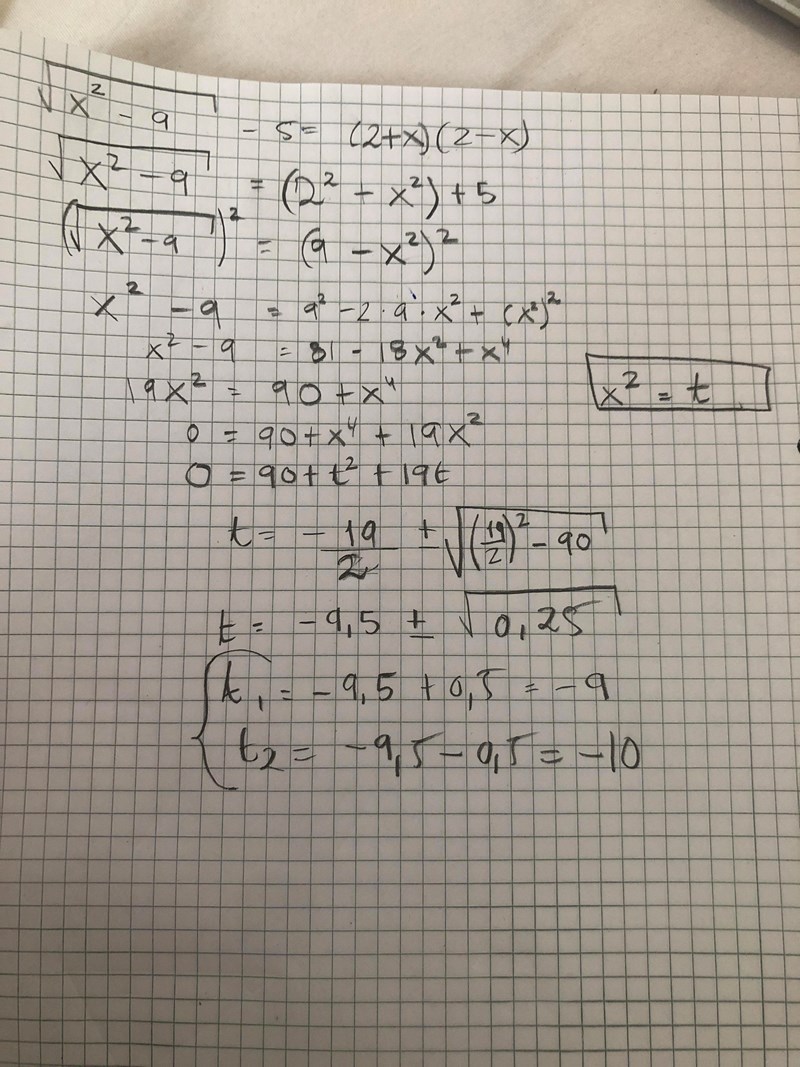 √(x² - 9) - 5 = (2+x)(2-x)
√(x² - 9) = (2² - x²) + 5
(√(x² - 9))² = (9 - x²)²
x² - 9 = 9² - 2 · 9 · x² + (x²)²
x² - 9 = 81 - 18x² + x⁴
19x² = 90 + x⁴
x² = t
0 = 90 + x⁴ + 19x²
0 = 90 + t² + 19t
t = - 19/2 ± √((19/2)² - 90)
t = -9,5 ± √(0,25)
t₁ = -9,5 + 0,5 = -9
t₂ = -9,5 - 0,5 = -10